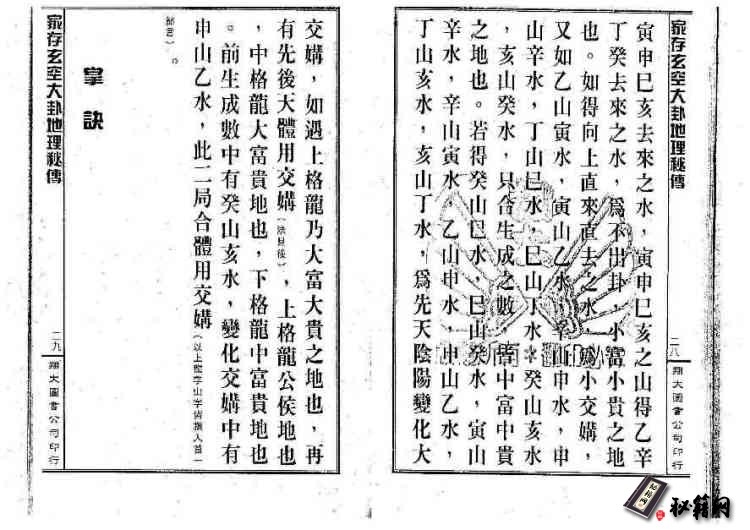 家存玄空大卦地理秘傳
二八
翔大圖書公司印行
寅申巳亥去來之水，寅申巳亥之山得乙辛
丁癸去來之水，為不出卦，小富小貴之地
也。如得向上直來直去之水，為小交媾，
又如乙山寅水，寅山乙水，辛山申水，申
山辛水，丁山巳水，巳山丁水，癸山亥水
，亥山癸水，只合生成之數，皆中富中貴
之地也。若得癸山巳水，巳山癸水，寅山
辛水，辛山寅水，乙山申水，申山乙水，
丁山亥水，亥山丁水，為先天陰陽變化大
交媾，如遇上格龍乃大富大貴之地也，再
有先後天體用交媾，上格龍公侯地也
，中格龍大富貴地也，下格龍中富貴地也
。前生成數中有癸山亥水，變化交媾中有
申山乙水，此二局合體用交媾
掌訣
家存玄空大卦地理秘傳
二九
翔大圖書公司印行
秘籍网